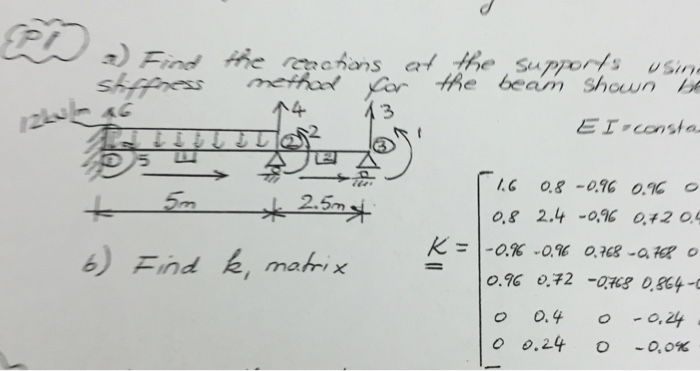 P1
a) Find the reactions at the supports using
stiffness method for the beam shown be
12kN/m 6 4 3
EI=consta
1 5 1 2 2 2 3 1
5m 2.5m
b) Find k, matrix
K =
1.6 0.8 -0.96 0.96 0
0.8 2.4 -0.96 0.72 0.4
-0.96 -0.96 0.768 -0.768 0
0.96 0.72 -0.768 0.864 -0
0 0.4 0 -0.24
0 0.24 0 -0.096